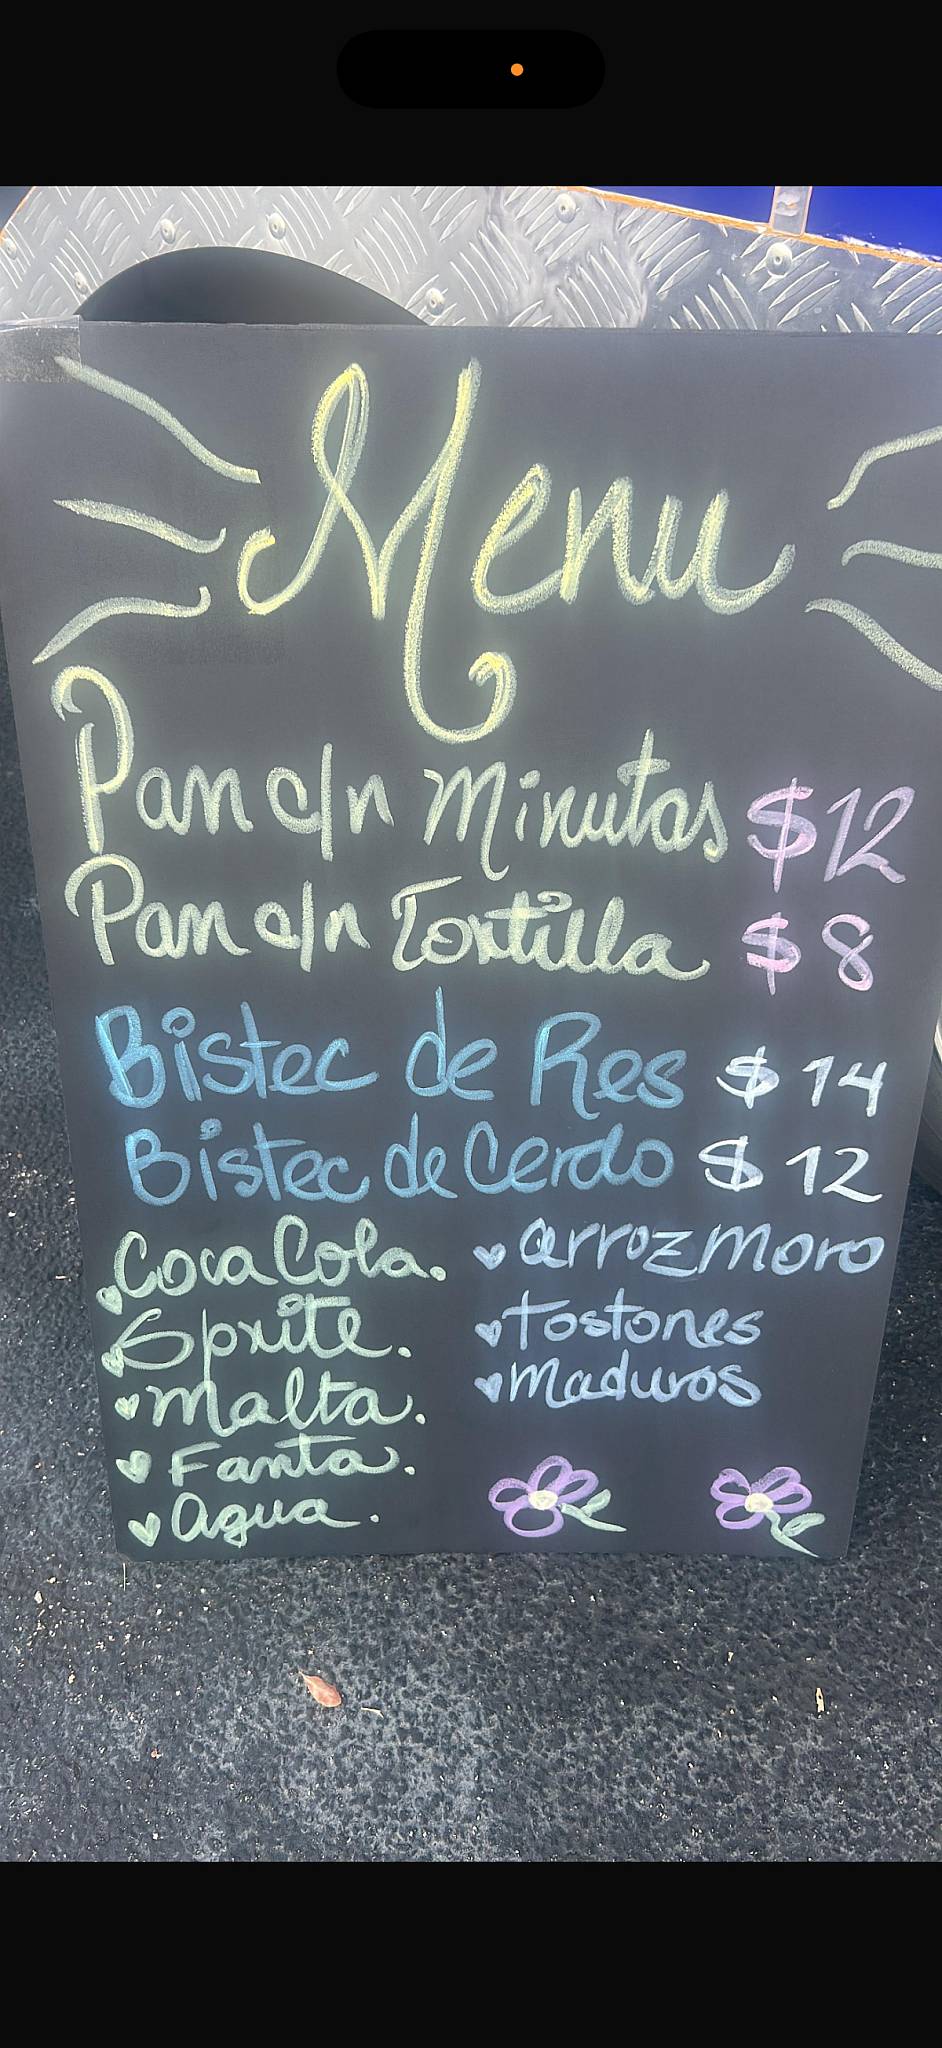 Menu
Pan c/n Minutas $12
Pan c/n Tortilla $8
Bistec de Res $14
Bistec de Cerdo $12
Coca Cola.
Sprite.
Malta.
Fanta.
Agua.
arroz Moro
Tostones
Maduros